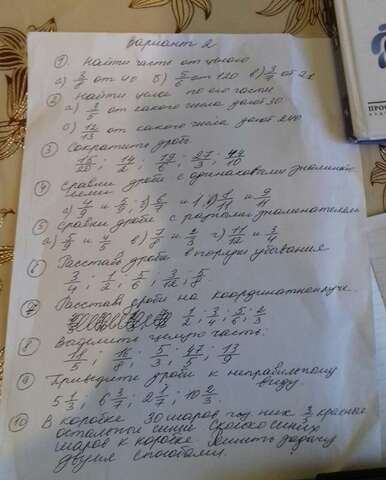 Вариант 2
① Найти часть от целого
а) 3/8 от 40 б) 5/6 от 120 в) 3/7 от 21
② Найти целое по его части
а) 3/5 от какого числа дают 30
б) 12/13 от какого числа дают 240
③ Сократите дробь
15/20; 14/2; 12/6; 27/3; 44/10
④ Сравни дроби с одинаковыми знаменат
елями
⑤ Сравни дроби с разными знаменателями
в) 7/8 и 2/3 г) 11/12 и 3/4
⑥ Расставь дроби в порядке убывания
3/4; 1/2; 5/6; 3/12; 5/8
⑦ Расставь дроби на координатном луче.
1/2; 3/4; 5/6; 2/3
⑧ Выделить целую часть:
11/5; 16/8; 5/3; 47/5; 13/9
⑨ Приведите дроби к неправильному
виду.
5 1/3; 6 3/4; 2 2/7; 10 2/3.
⑩ В коробке 30 шаров из них 2/3 красные
остальные синие Сколько синих
шаров в коробке. Решить задачу
двумя способами.
ПРО